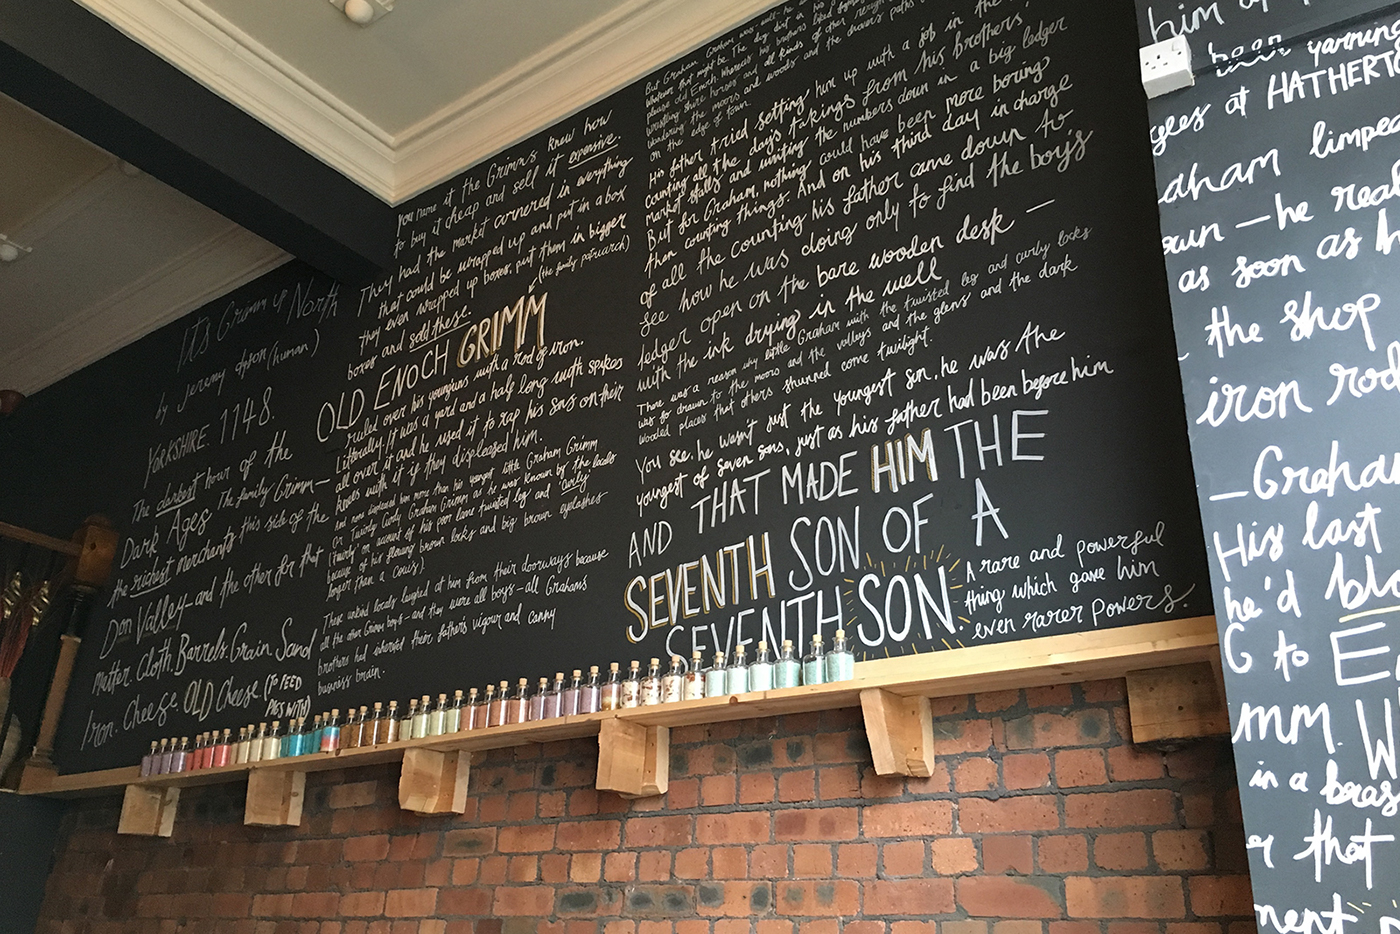 It's Grimm up North
by Jeremy dyson (human)
YORKSHIRE. 1148.
The darkest hour of the
Dark Ages. The family Grimm—
the richest merchants this side of the
Don Valley—and the other for that
matter. Cloth. Barrels. Grain. Sand
Iron. Cheese. OLD Cheese (TO FEED
PIGS WITH)
you name it the Grimms knew how
to buy it cheap and sell it expensive.
They had the market cornered in everything
that could be wrapped up and put in a box
they even wrapped up boxes, put them in bigger
boxes and sold these.
(the family patriarch)
OLD ENOCH GRIMM
ruled over his youngsuns with a rod of iron.
Litterally. It was a yard and a half long with spikes
all over it and he used it to rap his sons on their
heads with it if they displeased him.
and none displeased him more than his youngest little Graham Grimm
(or Twirly Curly Graham Grimm as he was known by the locals
('twirly' on account of his poor lame twisted leg and 'curly'
because of his flowing brown locks and big brown eyelashes
longer than a cows).
These unkind locals laughed at him from their doorways because
all the other Grimm boys—and they were all boys—all Grahams
brothers had inherited their fathers vigour and canny
business brain.
But Graham
whatever that might be. The
please old Enoch. Whereas his brothers liked
wrestling shire horses and all kinds of other
wandering the moors and woods and the drovers paths
on the edge of town.
His father tried setting him up with a job in the
counting all the day's takings from his brothers,
market stalls and writing the numbers down in a big ledger
But for Graham, nothing could have been more boring
than counting things. And on his third day in charge
of all the counting his father came down to
see how he was doing only to find the boy's
ledger open on the bare wooden desk —
with the ink drying in the well
There was a reason why little Graham with the twisted leg and curly locks
was for drawn to the moors and the valleys and the glens and the dark
wooded places that others shunned come twilight.
You see, he wasn't just the youngest son, he was the
youngest of seven sons, just as his father had been before him
AND THAT MADE HIM THE
SEVENTH SON OF A
SEVENTH SON.
A rare and powerful
thing which gave him
even rarer powers.
him
been yarning
at HATHERT
Graham limped
own — he real
as soon as h
the shop
iron rod
—Graham
His last
he'd
G to
mm. W
in a
that